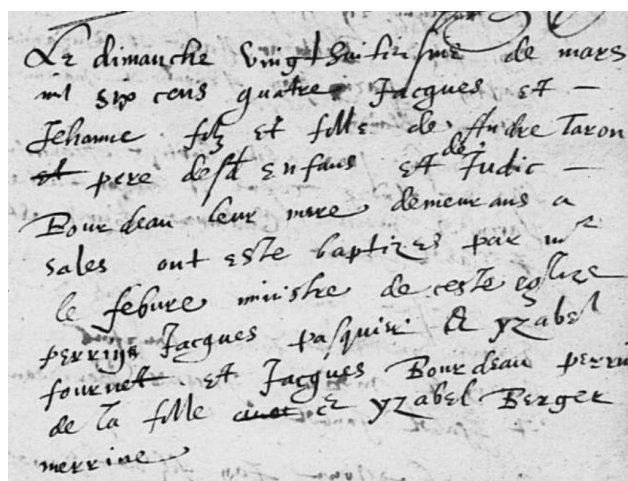 Le dimanche vingt huitiesme de mars
mil six cens quatre Jacques et
Jehanne filz et fille de Andre Taron
et pere desd enfans et de Judic
Bourdeau leur mere demeurans a
sales ont este baptizes par mr
le febure ministre de ceste eglize
perrins Jacques pasquier & yzabel
fournet et Jacques Bourdeau perrin
de la fille avec et yzabel Berger
merrine